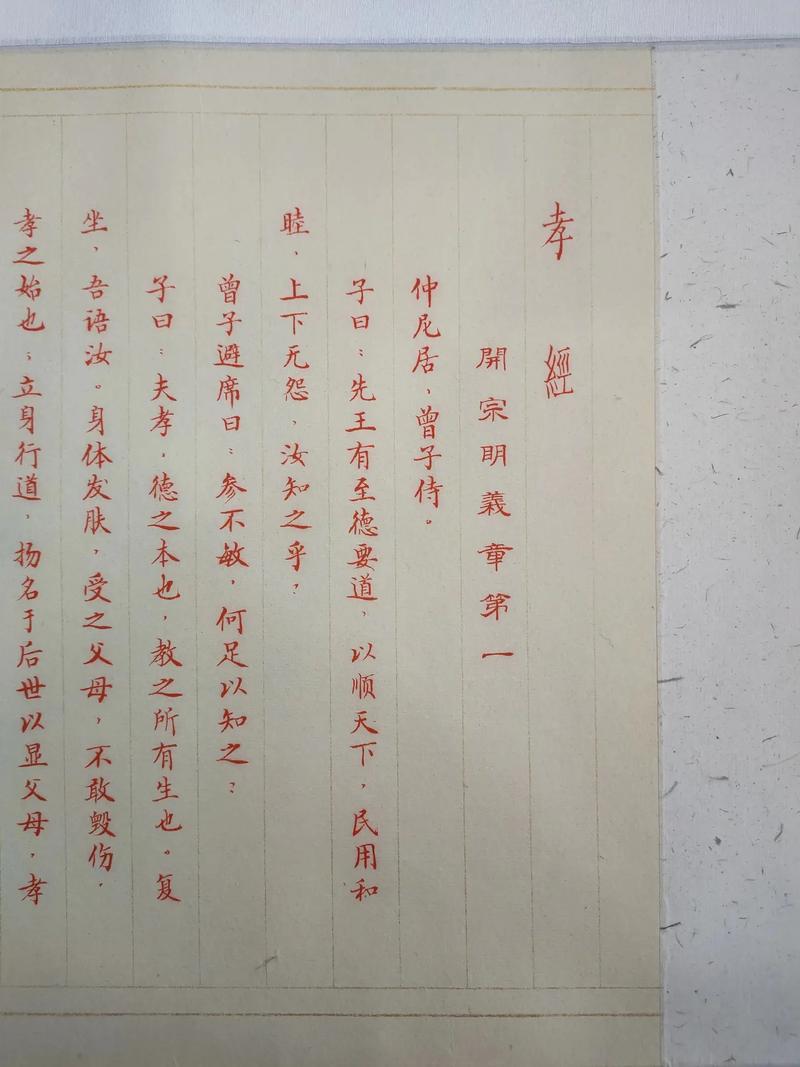 孝經
開宗明義章第一
仲尼居，曾子侍。
子曰：先王有至德要道，以顺天下，民用和
睦，上下无怨，汝知之乎？
曾子避席曰：参不敏，何足以知之？
子曰：夫孝，德之本也，教之所有生也。复
坐，吾语汝。身体发肤，受之父母，不敢毁伤，
孝之始也；立身行道，扬名于后世以显父母，孝